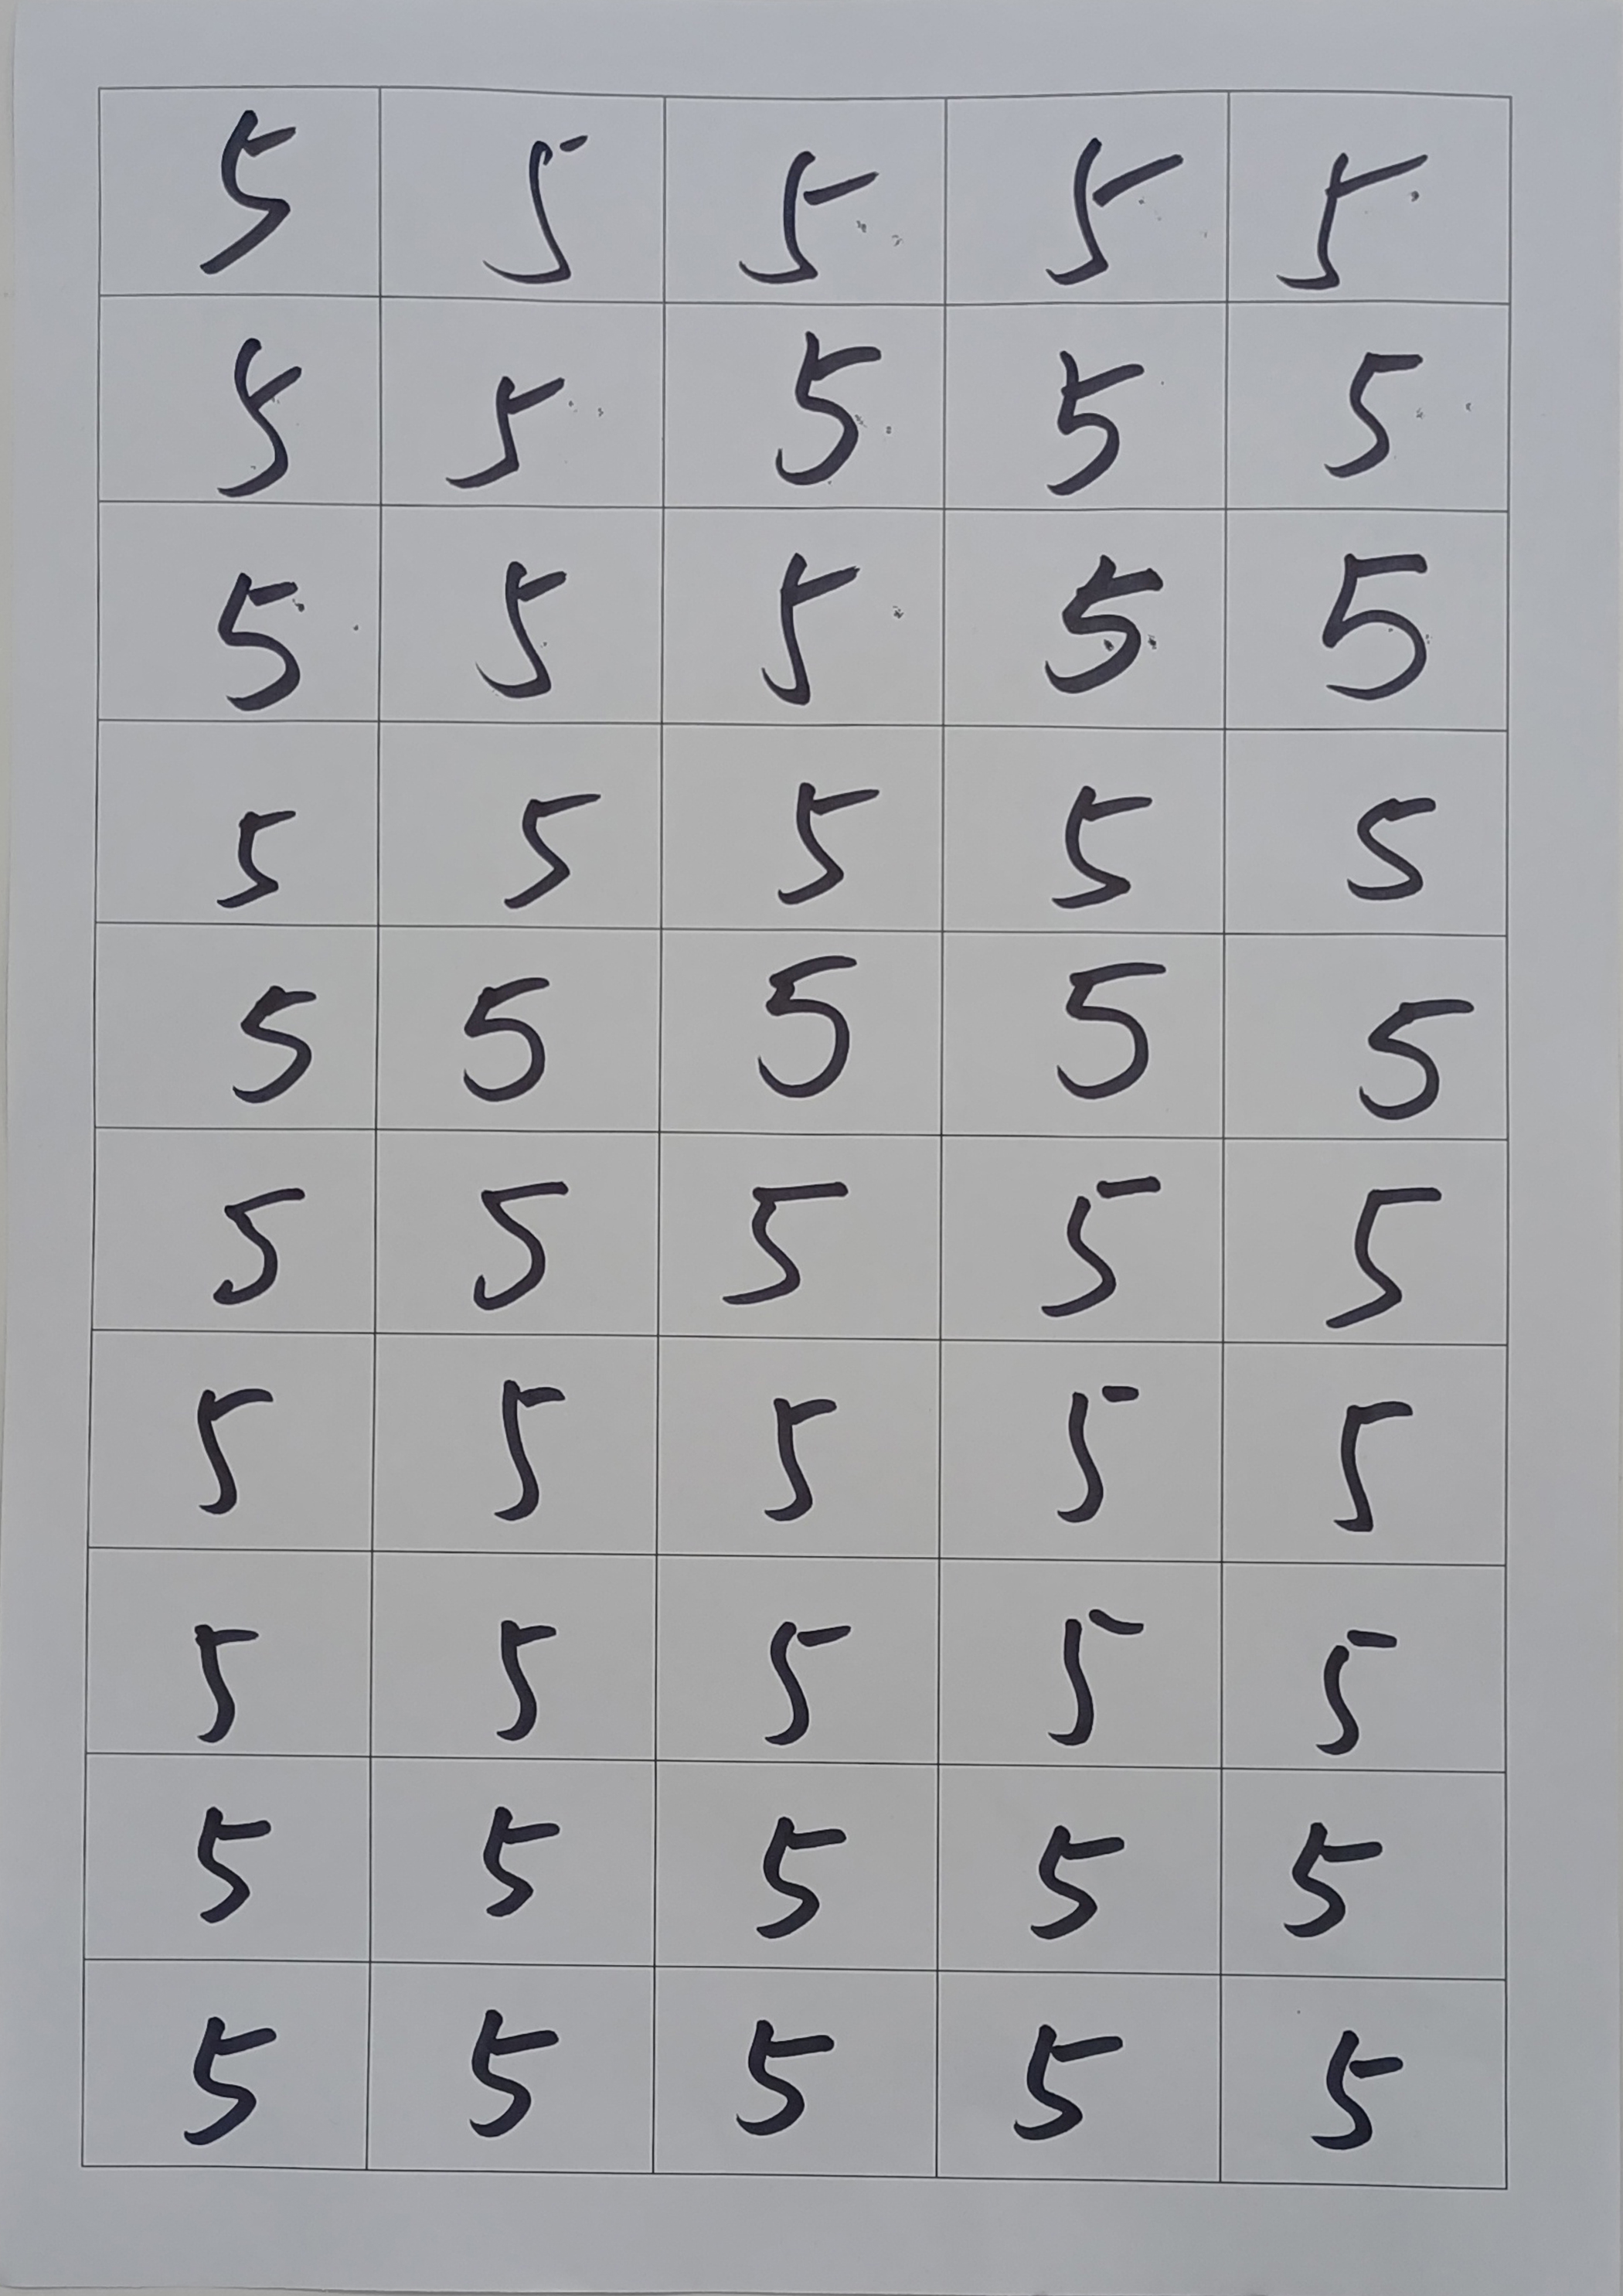 5 5 5 5 5
5 5 5 5 5
5 5 5 5 5
5 5 5 5 5
5 5 5 5 5
5 5 5 5 5
5 5 5 5 5
5 5 5 5 5
5 5 5 5 5
5 5 5 5 5